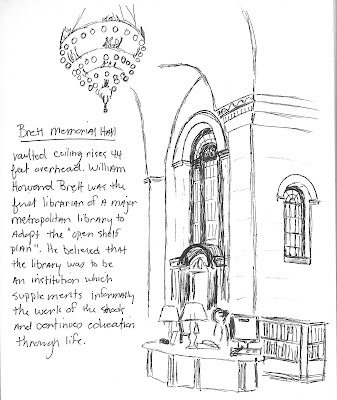 Brett Memorial Hall
vaulted ceiling rises 44
feet overhead. William
Howard Brett was the
first librarian of A major
metropolitan library to
Adopt the "open shelf
plan". He believed that
the library was to be
An institution which
supplements informally
the work of the schools
And continues education
through life.